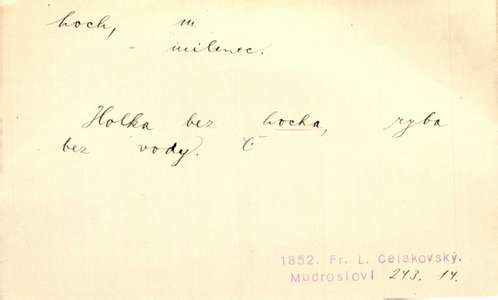 hoch, m.
milenec.
Holka bez hocha, ryba
bez vody. Č
1852. Fr. L. Čelakovský.
Mudrosloví 243. 14.